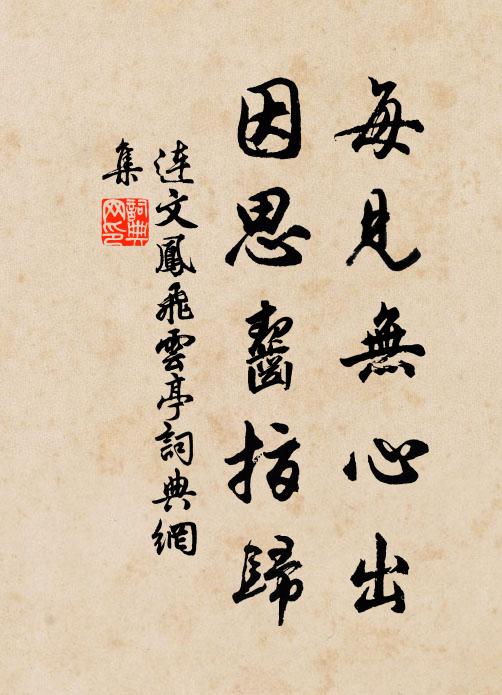 每見無心出
因思齧指歸
連文鳳飛雲亭詞典網
集
詞典
网印